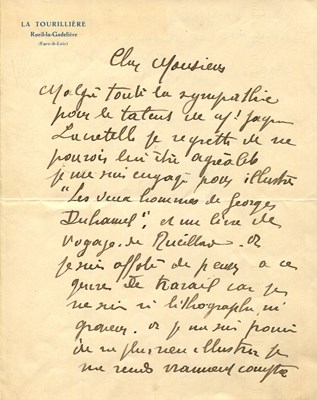 LA TOURILLIÈRE
Rueil-la-Gadelière
(Eure-&-Loir)
Cher Monsieur
Malgré toute la sympathie
pour le talent de Mr Jacques
Lacretelle je regrette de ne
pouvoir lui être agréable
je me suis engagé pour illustrer
"Les deux hommes de Georges
Duhamel", et un livre de
voyage de
je suis affolé de penser a ce
genre de travail car je
ne suis ni lithographe ni
graveur. or je me suis promis
de ne plus rien illustrer je
me rends vraiment compte